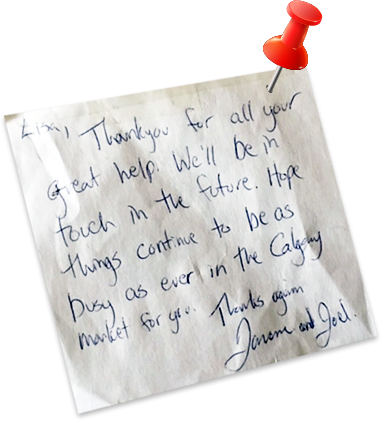 Lisa, Thankyou for all your
great help. We'll be in
touch in the future. Hope
things continue to be as
busy as ever in the Calgary
market for you. Thanks again
and Joel.